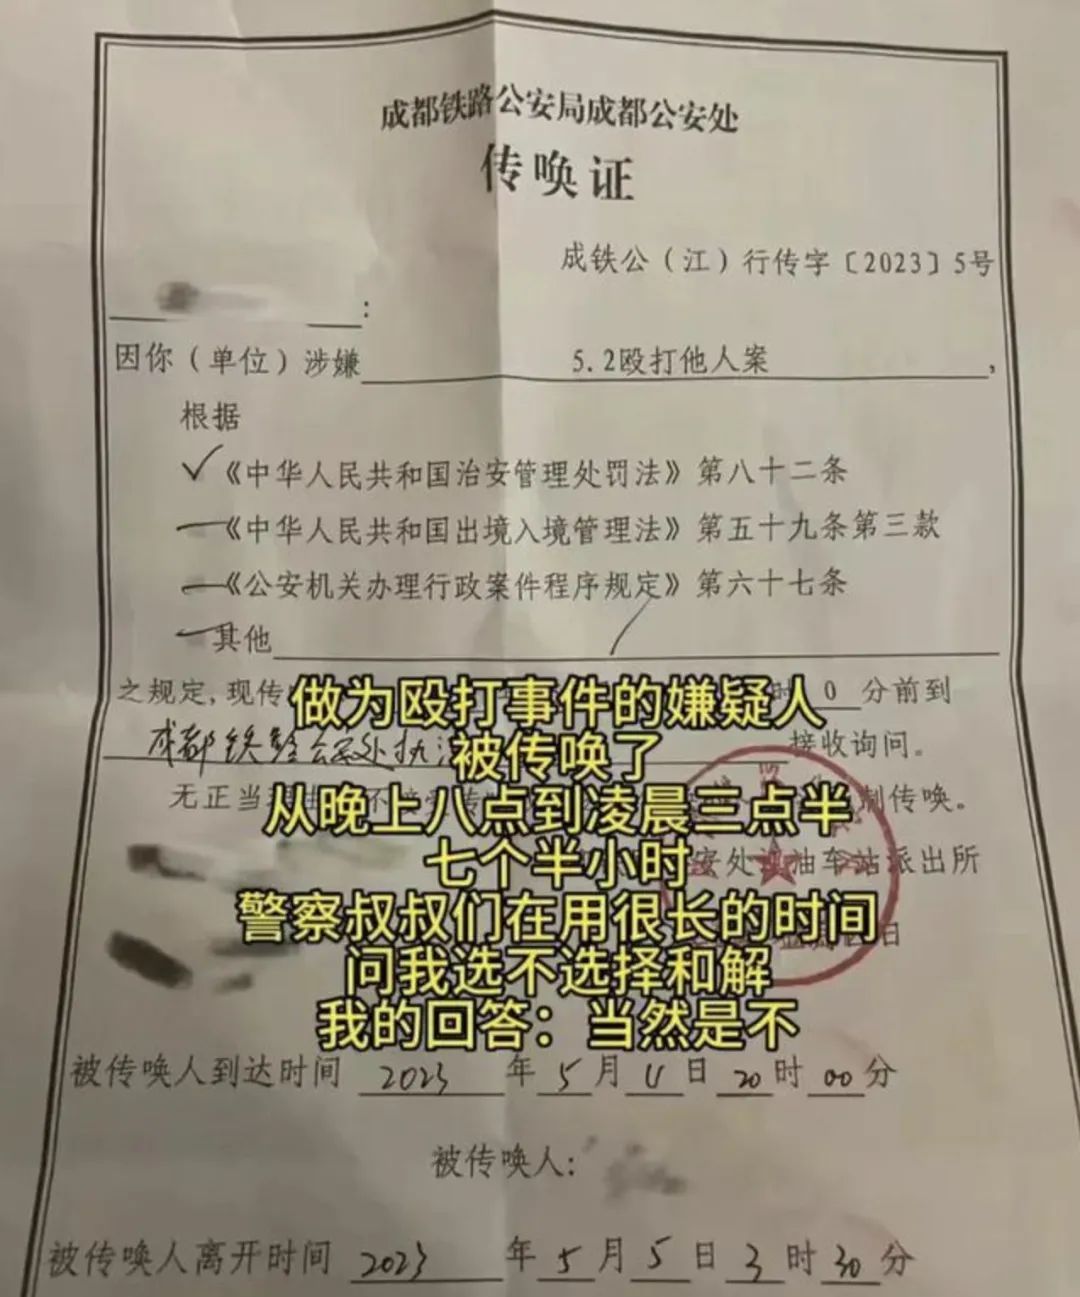 成都铁路公安局成都公安处
传唤证
成铁公（江）行传字〔2023〕5号
：
因你（单位）涉嫌 5.2殴打他人案，
根据
✓《中华人民共和国治安管理处罚法》第八十二条
《中华人民共和国出境入境管理法》第五十九条第三款
《公安机关办理行政案件程序规定》第六十七条
其他 /
之规定，现传 时 0 分前到
成都铁路公安处执 接收询问。
无正当 制传唤。
安处 油车站派出所
日
做为殴打事件的嫌疑人
被传唤了
从晚上八点到凌晨三点半
七个半小时
警察叔叔们在用很长的时间
问我选不选择和解
我的回答：当然是不
被传唤人到达时间 2023 年 5 月 4 日 20 时 00 分
被传唤人：
被传唤人离开时间 2023 年 5 月 5 日 3 时 30 分